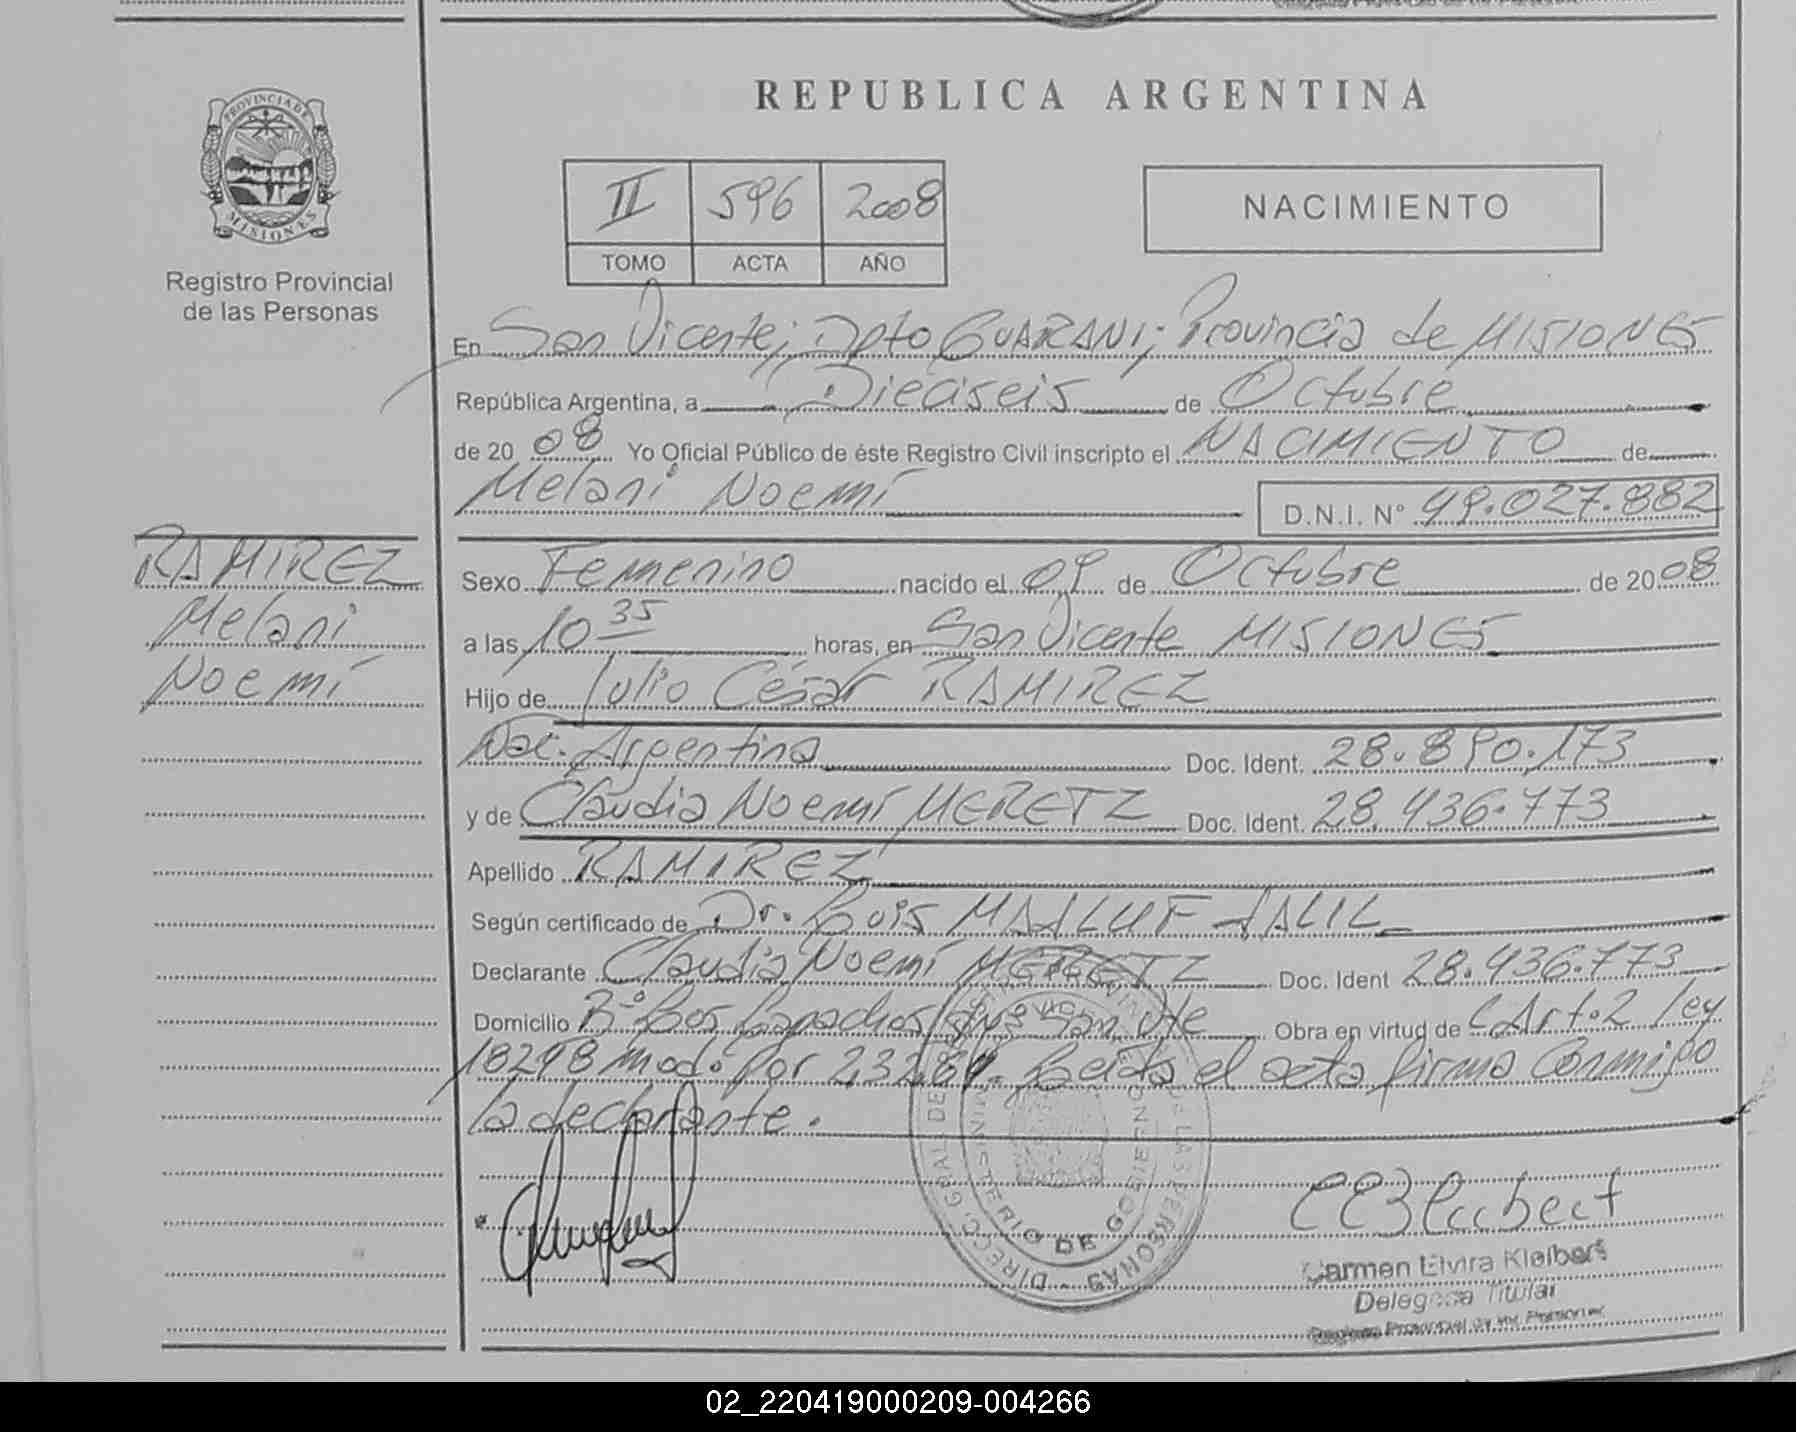 REPUBLICA ARGENTINA
PROVINCIA DE
MISIONES
Registro Provincial
de las Personas
II 596 2008
TOMO ACTA AÑO
NACIMIENTO
En San Vicente; Dpto GUARANI; Provincia de MISIONES
República Argentina, a Dieciseis de Octubre
de 2008 Yo Oficial Público de éste Registro Civil inscripto el NACIMIENTO de
Melani Noemí D.N.I. Nº 49.027.882
RAMIREZ
Melani
Noemí
Sexo Femenino nacido el 09 de Octubre de 2008
a las 10 35 horas, en San Vicente MISIONES
Hijo de Julio César RAMIREZ
Nac. Argentina Doc. Ident. 28.890.173
y de Claudia Noemí MERETZ Doc. Ident. 28.436.773
Apellido RAMIREZ
Según certificado de Dr. Luis MAALUF JALIL
Declarante Claudia Noemí MERETZ Doc. Ident 28.436.773
Domicilio Bº Los San Vte Obra en virtud de Art. 2 ley
18248 mod. por 23264. Leída el acta firma conmigo
la declarante.
DIRECC. GRAL. DE LAS PERSONAS
MINISTERIO DE GOBIERNO
Carmen Elvira Kleibert
Delegada Titular
Registro Provincial de las Personas
02_220419000209-004266